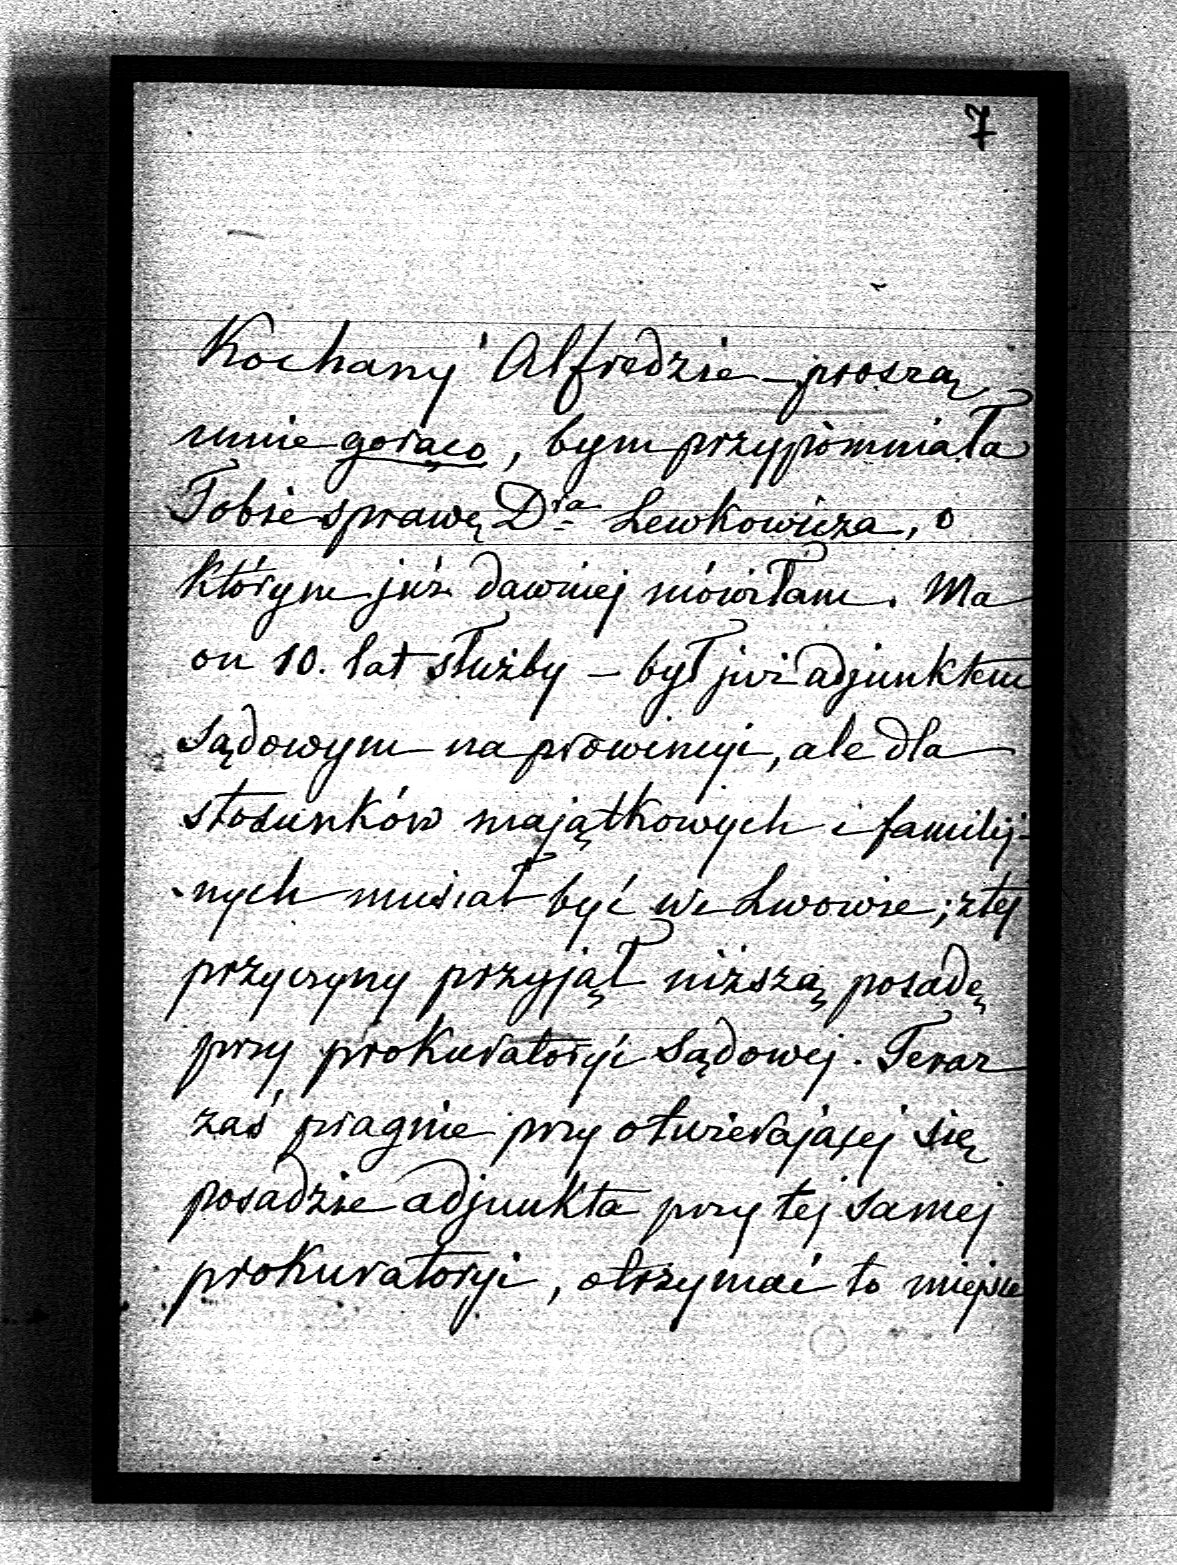 7
Kochany Alfredzie – proszą
mnie gorąco, bym przypomniała
Tobie sprawę Dra Lewkowicza, o
którym już dawniej mówiłam. Ma
on 10. lat służby – był już adjunktem
sądowym na prowincyi, ale dla
stosunków majątkowych i familij-
nych musiał być we Lwowie; z tej
przyczyny przyjął niższą posadę
przy prokuratoryi sądowej. Teraz
zaś pragnie przy otwierającej się
posadzie adjunkta przy tej samej
prokuratoryi, otrzymać to miejsce